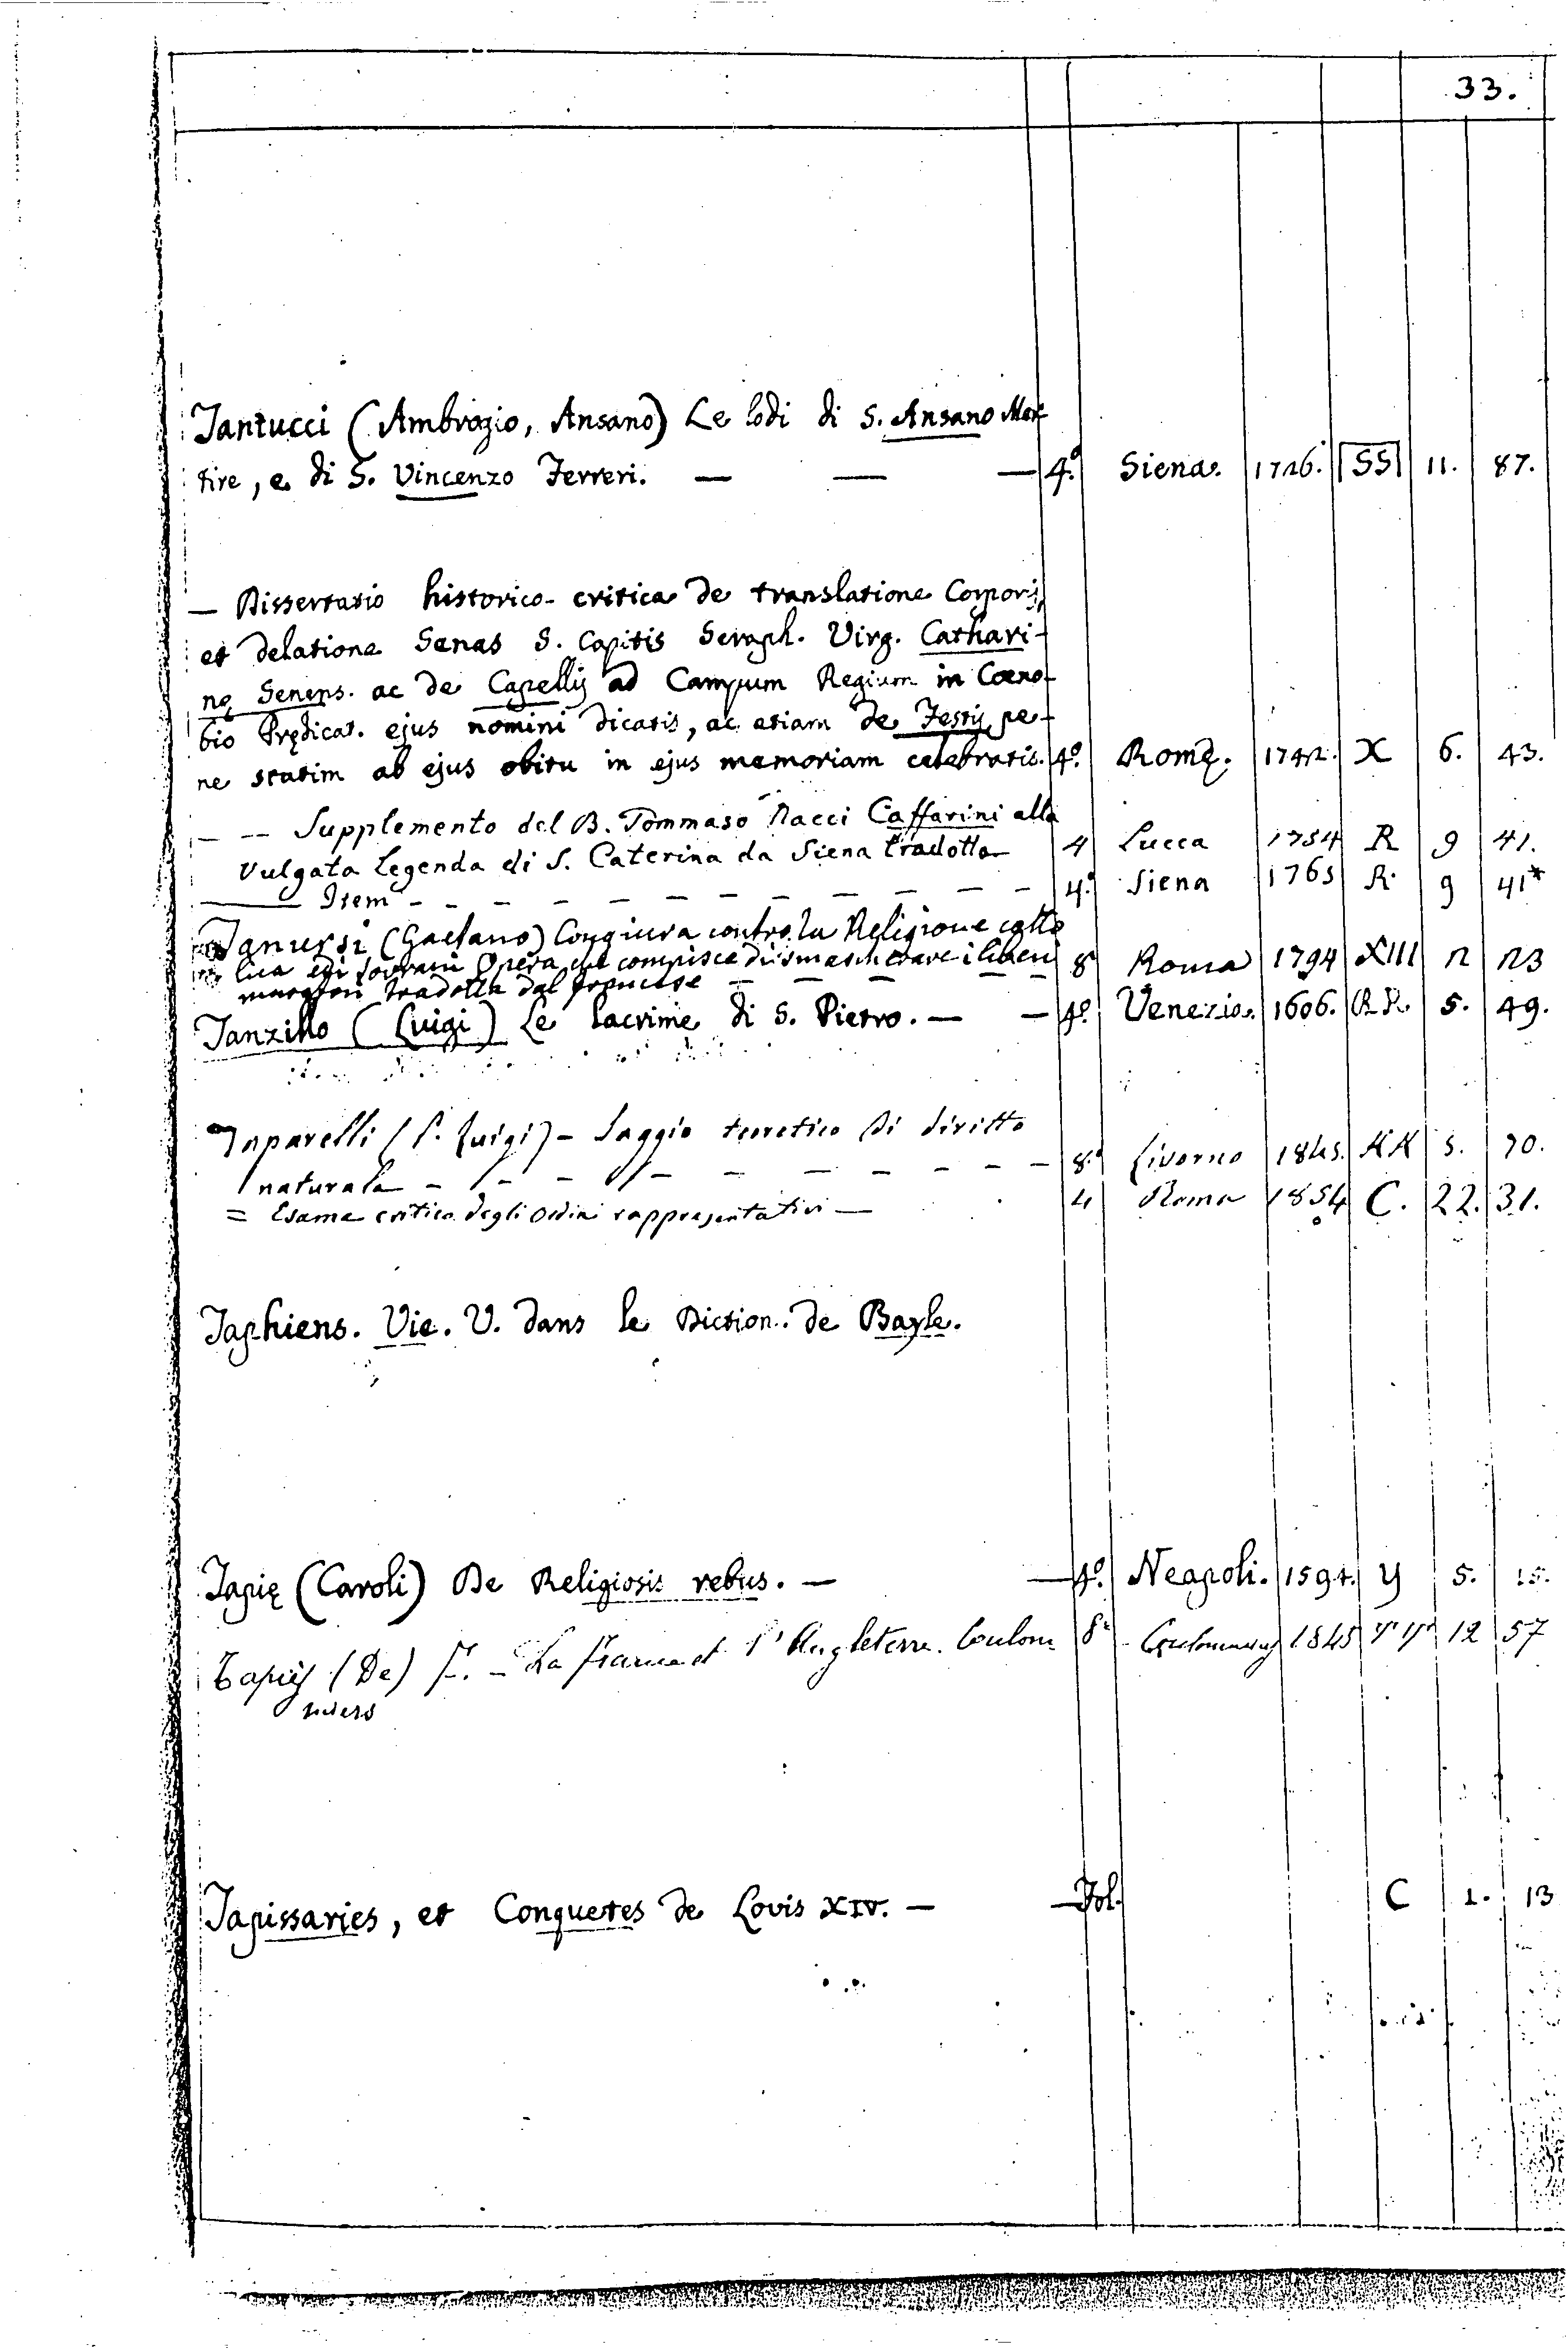 33.
Tantucci (Ambrogio, Ansano) Le lodi di S. Ansano Mar-
tire, e di S. Vincenzo Ferreri. — — — 4.º Siena. 1726. SS 11. 87.
— Dissertatio historico-critica de translatione Corporis,
et delatione Senas S. Capitis Seraph. Virg. Cathari-
nę Senens. ac de Capellis ad Campum Regium in Cœno-
bio Prędicat. ejus nomini dicatis, ac etiam de Festis pe-
ne statim ab ejus obitu in ejus memoriam celebratis. 4º. Romę. 1742. X 6. 43.
— -- Supplemento del B. Tommaso Nacci Caffarini alla
Vulgata Legenda di S. Caterina da Siena tradotto 4 Lucca 1754 R 9 41.
—— Item - - - - - - - - - 4.º Siena 1765 R. 9 41*
(Gaetano) Congiura contro la Religione catto
lica ed i sovrani Opera che compisce di smascherare i liberi 8 Roma 1794 XIII 12 123
muratori tradotta dal francese
Tanzillo (Luigi) Le lacrime di S. Pietro. — — 4º. Venezia. 1606. RR. 5. 49.
Taparelli (P. Luigi) - Saggio teoretico di diritto
naturale - - - - - - - - 8.º Livorno 1845. KK 5. 70.
= Esame critico degli ordini rappresentativi — 4 Roma 1854 C. 22. 31.
Taphiens. Vie. V. dans le Diction. de Bayle.
Tapię (Caroli) De Religiosis rebus. — — 4º. Neapoli. 1594. Y 5. 15.
Tapiés (De) F. - La France et l'Angleterre. Coulom 8º 1845 YY 12 57
miers
Tapissaries, et Conquetes de Lovis XIV. — — Fol. C 1. 13